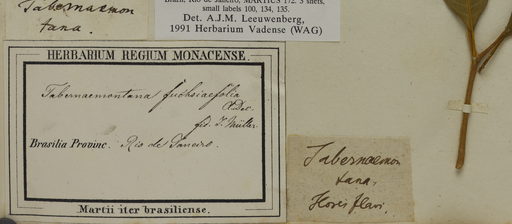 Tabernaemon
tana.
Brazil, Rio de Janeiro, MARTIUS 172. 3 shets,
small labels 100, 134, 135.
Det. A.J.M. Leeuwenberg,
1991 Herbarium Vadense (WAG)
HERBARIUM REGIUM MONACENSE.
Tabernaemontana fuchsiaefolia
A.Dec.
fid. J. Müller.
Brasilia Provinc. Rio de Janeiro.
Martii iter brasiliense.
Tabernaemon
tana.
Flores flavi.